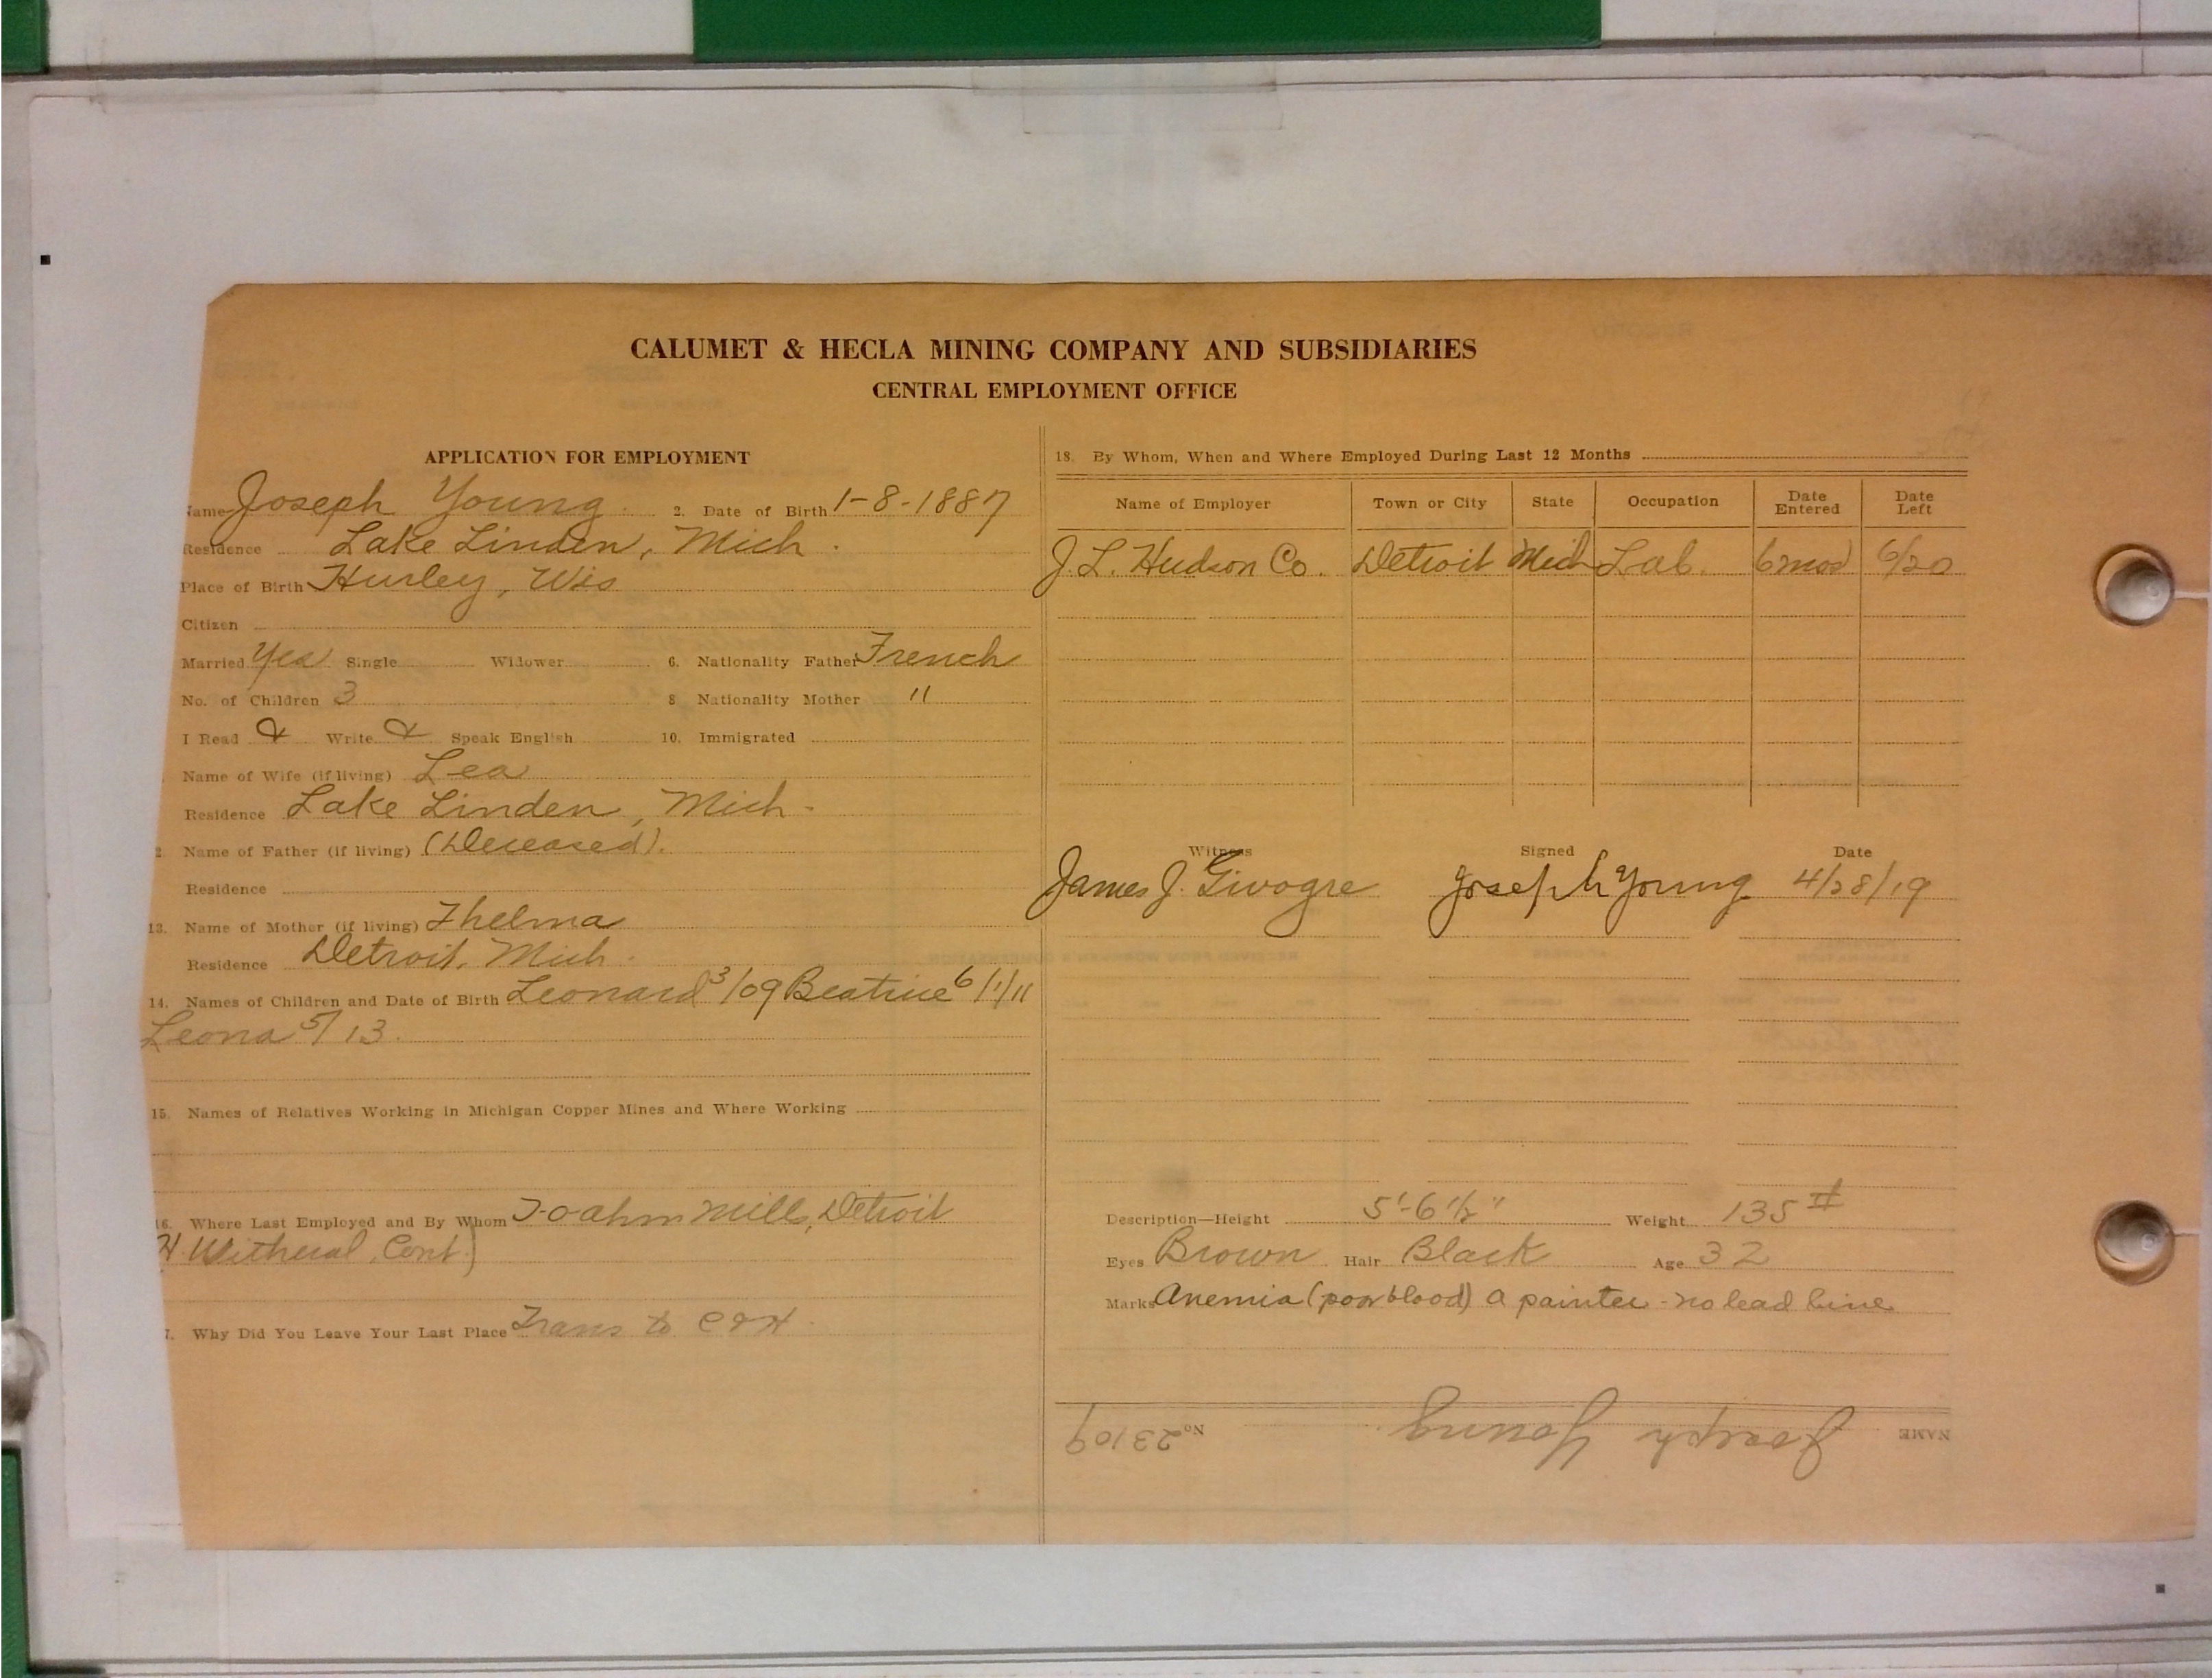 CALUMET & HECLA MINING COMPANY AND SUBSIDIARIES
CENTRAL EMPLOYMENT OFFICE
APPLICATION FOR EMPLOYMENT
Name Joseph Young 2. Date of Birth 1-8-1887
Residence Lake Linden, Mich.
Place of Birth Hurley, Wis
Citizen
Married Yes Single Widower 6. Nationality Father French
No. of Children 3 8 Nationality Mother "
I Read & Write & Speak English 10. Immigrated
Name of Wife (if living) Lea
Residence Lake Linden, Mich.
2. Name of Father (if living) (Deceased).
Residence
13. Name of Mother (if living) Thelma
Residence Detroit, Mich.
14. Names of Children and Date of Birth Leonard 3/09 Beatrice 6/1/11
Leona 5/13.
15. Names of Relatives Working in Michigan Copper Mines and Where Working
16. Where Last Employed and By Whom Mills, Detroit
H. Cont)
7. Why Did You Leave Your Last Place Trans to C&H.
18. By Whom, When and Where Employed During Last 12 Months
Name of Employer Town or City State Occupation Date Entered Date Left
J. L. Hudson Co. Detroit Mich Lab. 6 mos 6/20
Witness Signed Date
James J. Givogre Joseph Young 4/28/19
Description—Height 5'-6 1/2" Weight 135 #
Eyes Brown Hair Black Age 32
Marks Anemia (poor blood) a painter - no lead line
NAME Joseph Young No. 23109